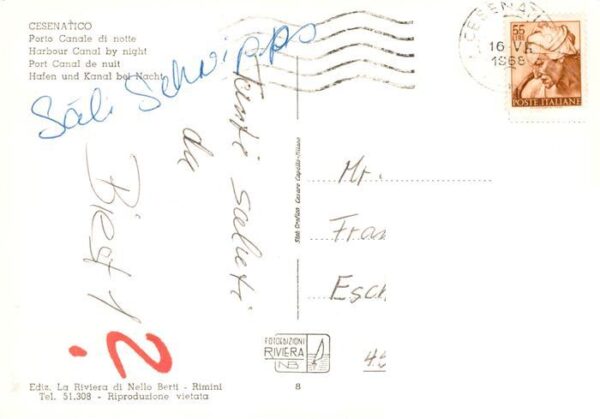 CESENATICO
Porto Canale di notte
Harbour Canal by night
Port Canal de nuit
Hafen und Kanal bei Nacht
Säli Schnipps
Tanti saluti
da
Biest 1
2.
Mr.
Fran
Esch
CESENATI
16-VI
1968
55
LIRE
POSTE ITALIANE
Stab. Grafico Cesare Capello-Milano
FOTOEDIZIONI
RIVIERA
NB
8
Ediz. La Riviera di Nello Berti - Rimini
Tel. 51.308 - Riproduzione vietata